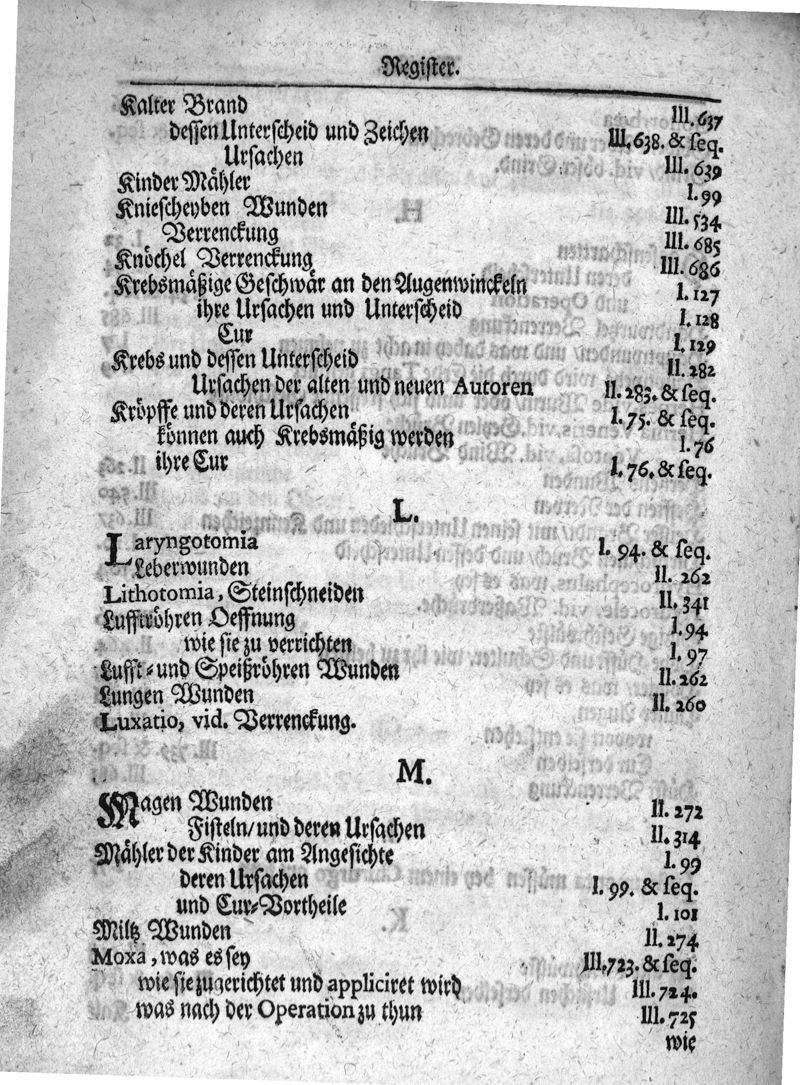 Register.
Kalter Brand III. 637
dessen Unterscheid und Zeichen III. 638. & seq.
Ursachen III. 639
Kinder Mähler I. 99
Kniescheyben Wunden III. 534
Verrenckung III. 685
Knöchel Verrenckung III. 686
Krebsmäßige Geschwär an den Augenwinckeln I. 127
ihre Ursachen und Unterscheid I. 128
Cur I. 129
Krebs und dessen Unterscheid II. 282
Ursachen der alten und neuen Autoren II. 283. & seq.
Kröpffe und deren Ursachen I. 75. & seq.
können auch Krebsmäßig werden I. 76
ihre Cur I. 76. & seq.
L.
Laryngotomia I. 94. & seq.
Leberwunden II. 262
Lithotomia, Steinschneiden II. 341
Lufftröhren Oeffnung I. 94
wie sie zu verrichten I. 97
Lufft- und Speißröhren Wunden II. 262
Lungen Wunden II. 260
Luxatio, vid. Verrenckung.
M.
Magen Wunden II. 272
Fisteln/ und deren Ursachen II. 314
Mähler der Kinder am Angesichte I. 99
deren Ursachen I. 99. & seq.
und Cur-Vortheile I. 101
Miltz Wunden II. 274
Moxa, was es sey III. 723. & seq.
wie sie zugerichtet und appliciret wird III. 724.
was nach der Operation zu thun III. 725
wie